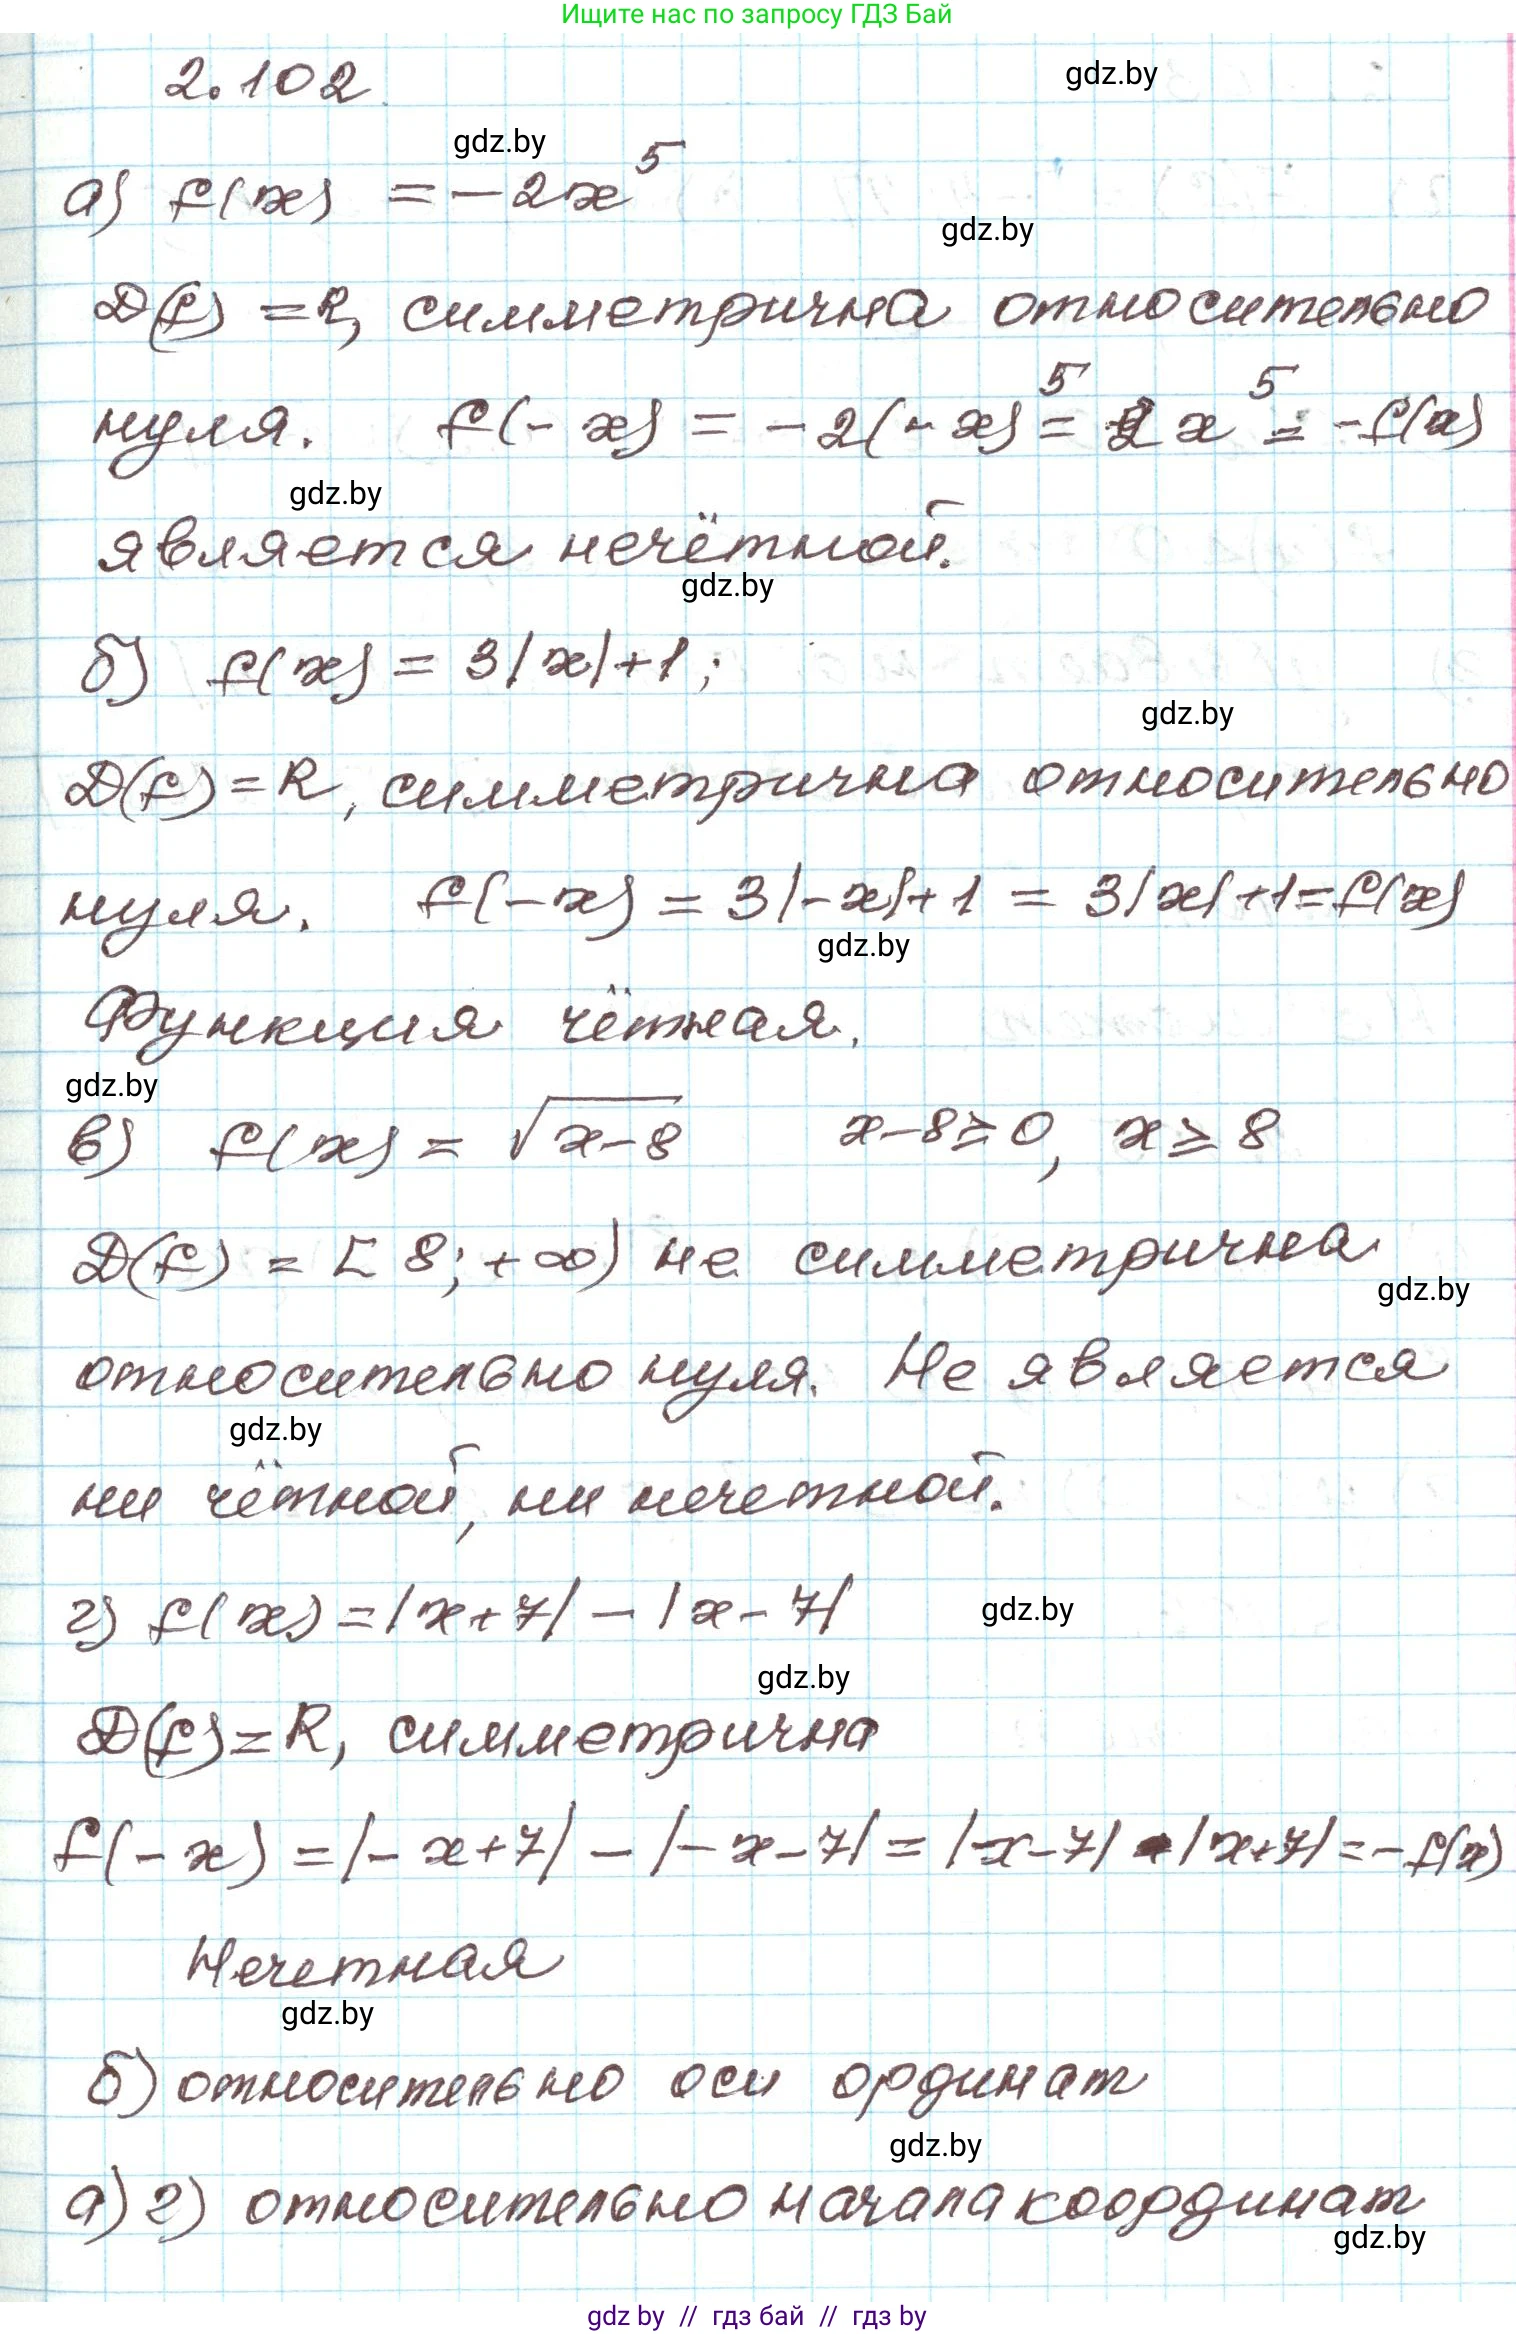 Ищите нас по запросу ГДЗ Бай
2.102
gdz.by
gdz.by
а) f(x) = -2x⁵
gdz.by
D(f) = R, симметрична относительно
нуля. f(-x) = -2(-x)⁵ = 2x⁵ = -f(x)
gdz.by
является нечётной.
gdz.by
б) f(x) = 3|x|+1;
gdz.by
D(f) = R, симметрична относительно
нуля. f(-x) = 3|-x|+1 = 3|x|+1 = f(x)
gdz.by
Функция чётная.
gdz.by
в) f(x) = √(x-8) x-8≥0, x≥8
D(f) = [8; +∞) не симметрична
gdz.by
относительно нуля. Не является
gdz.by
ни чётной, ни нечетной.
г) f(x) = |x+7| - |x-7|
gdz.by
gdz.by
D(f) = R, симметрична
f(-x) = |-x+7| - |-x-7| = |x-7| - |x+7| = -f(x)
Нечетная
gdz.by
б) относительно оси ординат
gdz.by
а) г) относительно начала координат
gdz.by
gdz by // гдз бай // гдз by